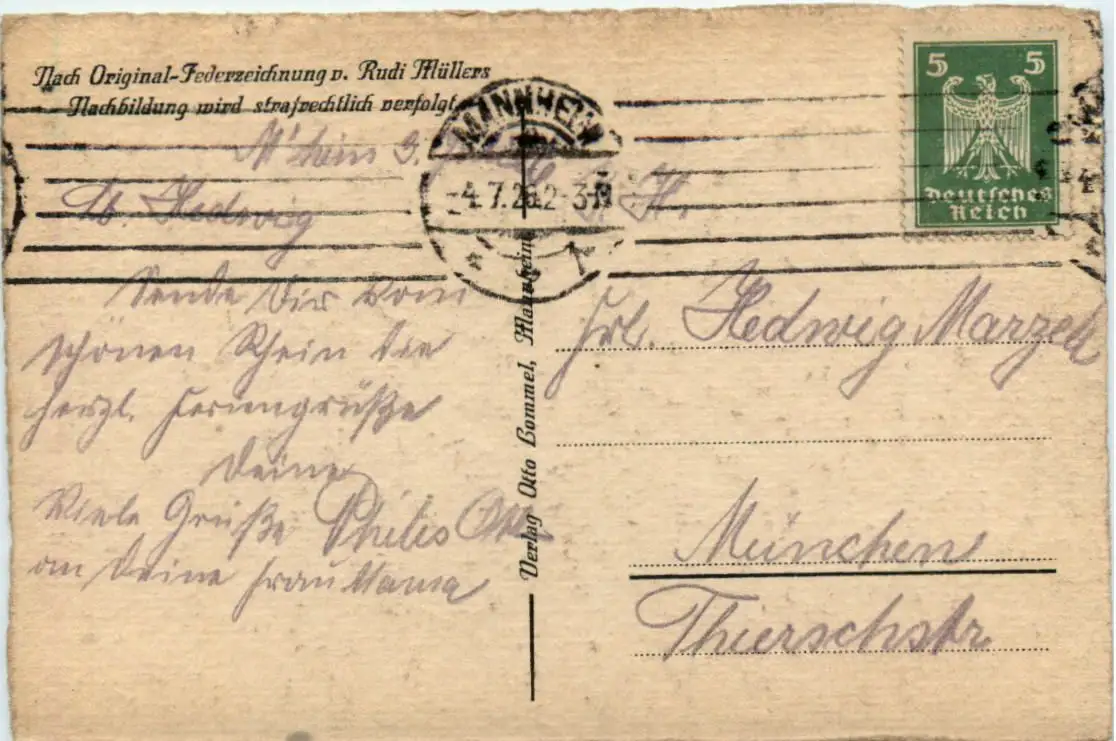 Nach Original-Federzeichnung v. Rudi Müllers
Nachbildung wird strafrechtlich verfolgt
MANNHEIM
-4.7.26.2-3N
1
5 5
Deutsches
Reich
M'heim 3.
Lb. Hedwig
Sende Dir vom
schönen Rhein die
herzl. Feriengrüße
Deine
Viele Grüße Philis
an Deine Frau Mama
Verlag Otto Hommel, Mannheim
Frl. Hedwig Marzell
München
Thierschstr